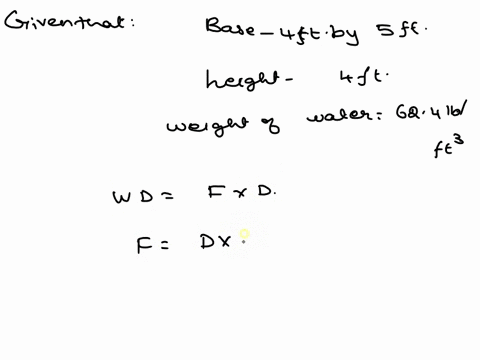 Given that: Base - 4ft. by 5 ft.
height - 4 ft.
weight of water = 62.4 lb/
ft³
W D = F x D.
F = D x